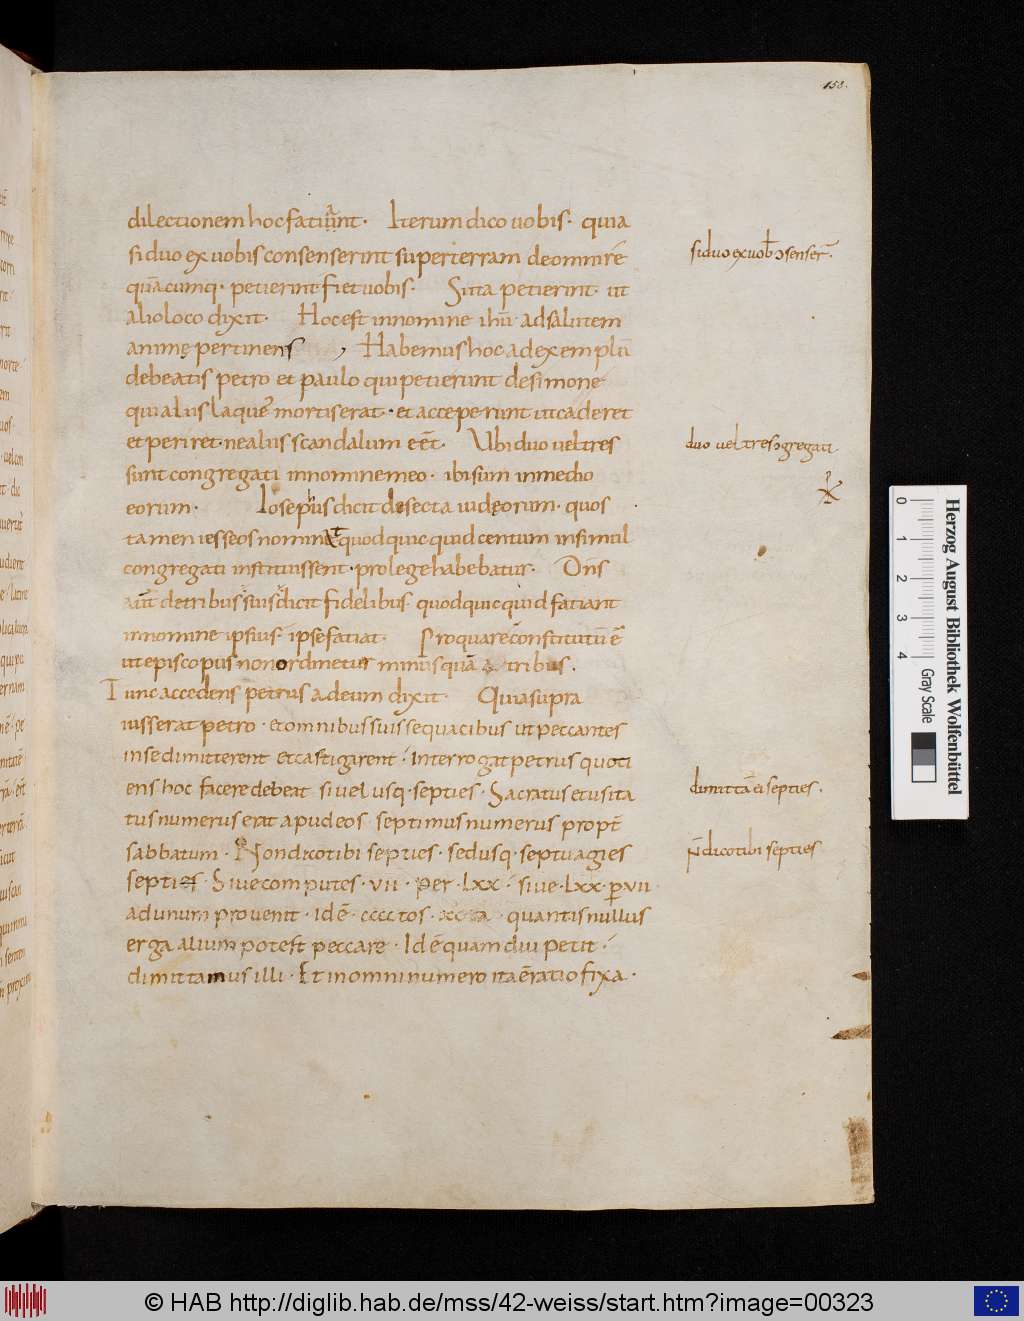 158.
dilectionem hoc fatiunt· Iterum dico uobis· quia
si duo ex uobis consenserint super terram de omni re
quācumq· petierint fiet uobis· Si ita petierint ut
alio loco dixit· Hoc est in nomine ihū ad salutem
animę pertinens, Habemus hoc ad exemplū
debeatis petro et paulo qui petierunt de simone
qui alius laqueꝰ mortis erat· et acceperunt ut caderet
et periret· ne alius scandalum eēt· Ubi duo uel tres
sunt congregati in nomine meo· ibi sum in medio
eorum· Iosephus dicit de secta iudęorum· quos
tamen iesseos nominat quod quicquid centum insimul
congregati instituissent· pro lege habebatur· Dn̄s
aut̄ de tribus suis dicit fidelibus· quod quicquid fatiant
in nomine ipsius ipse fatiat· Pro qua re constitutū ē
ut episcopus non ordinetur minus quā a tribus.
Tunc accedens petrus ad eum dixit· Quia supra
iusserat petro· et omnibus suis sequacibus ut peccantes
in se dimitterent et castigarent· interrogat petrus quoti
ens hoc facere debeat si uel usq· septies· Sacratus et usita
tus numerus erat apud eos septimus numerus propt̄
sabbatum· Non dico tibi septies· sed usq· septuagies
septies· Siue computes· VII· per· LXX· siue· LXX· p̄ VII·
ad unum prouenit· id ē· cccctos· quantis nullus
erga alium potest peccare· Id ē quamdiu petit·
dimittamus illi· Et in omni numero ita ē ratio fixa·
si duo ex uob̄ ɔsenser̄·
duo uel tres ɔgregati
dimittā ei septies·
n̄ dico tibi septies
Herzog August Bibliothek Wolfenbüttel
0 1 2 3 4
Gray Scale
© HAB http://diglib.hab.de/mss/42-weiss/start.htm?image=00323